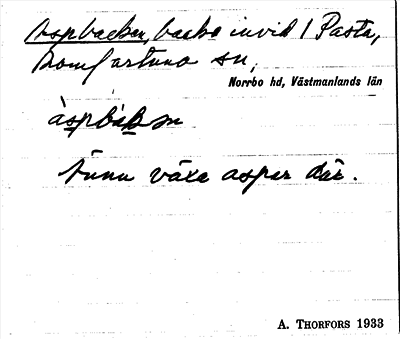 Aspbacken, backe invid 1 Pasta,
Romfartuna sn,
Norrbo hd, Västmanlands län
àspbákən
Ännu växa aspar där.
A. Thorfors 1933